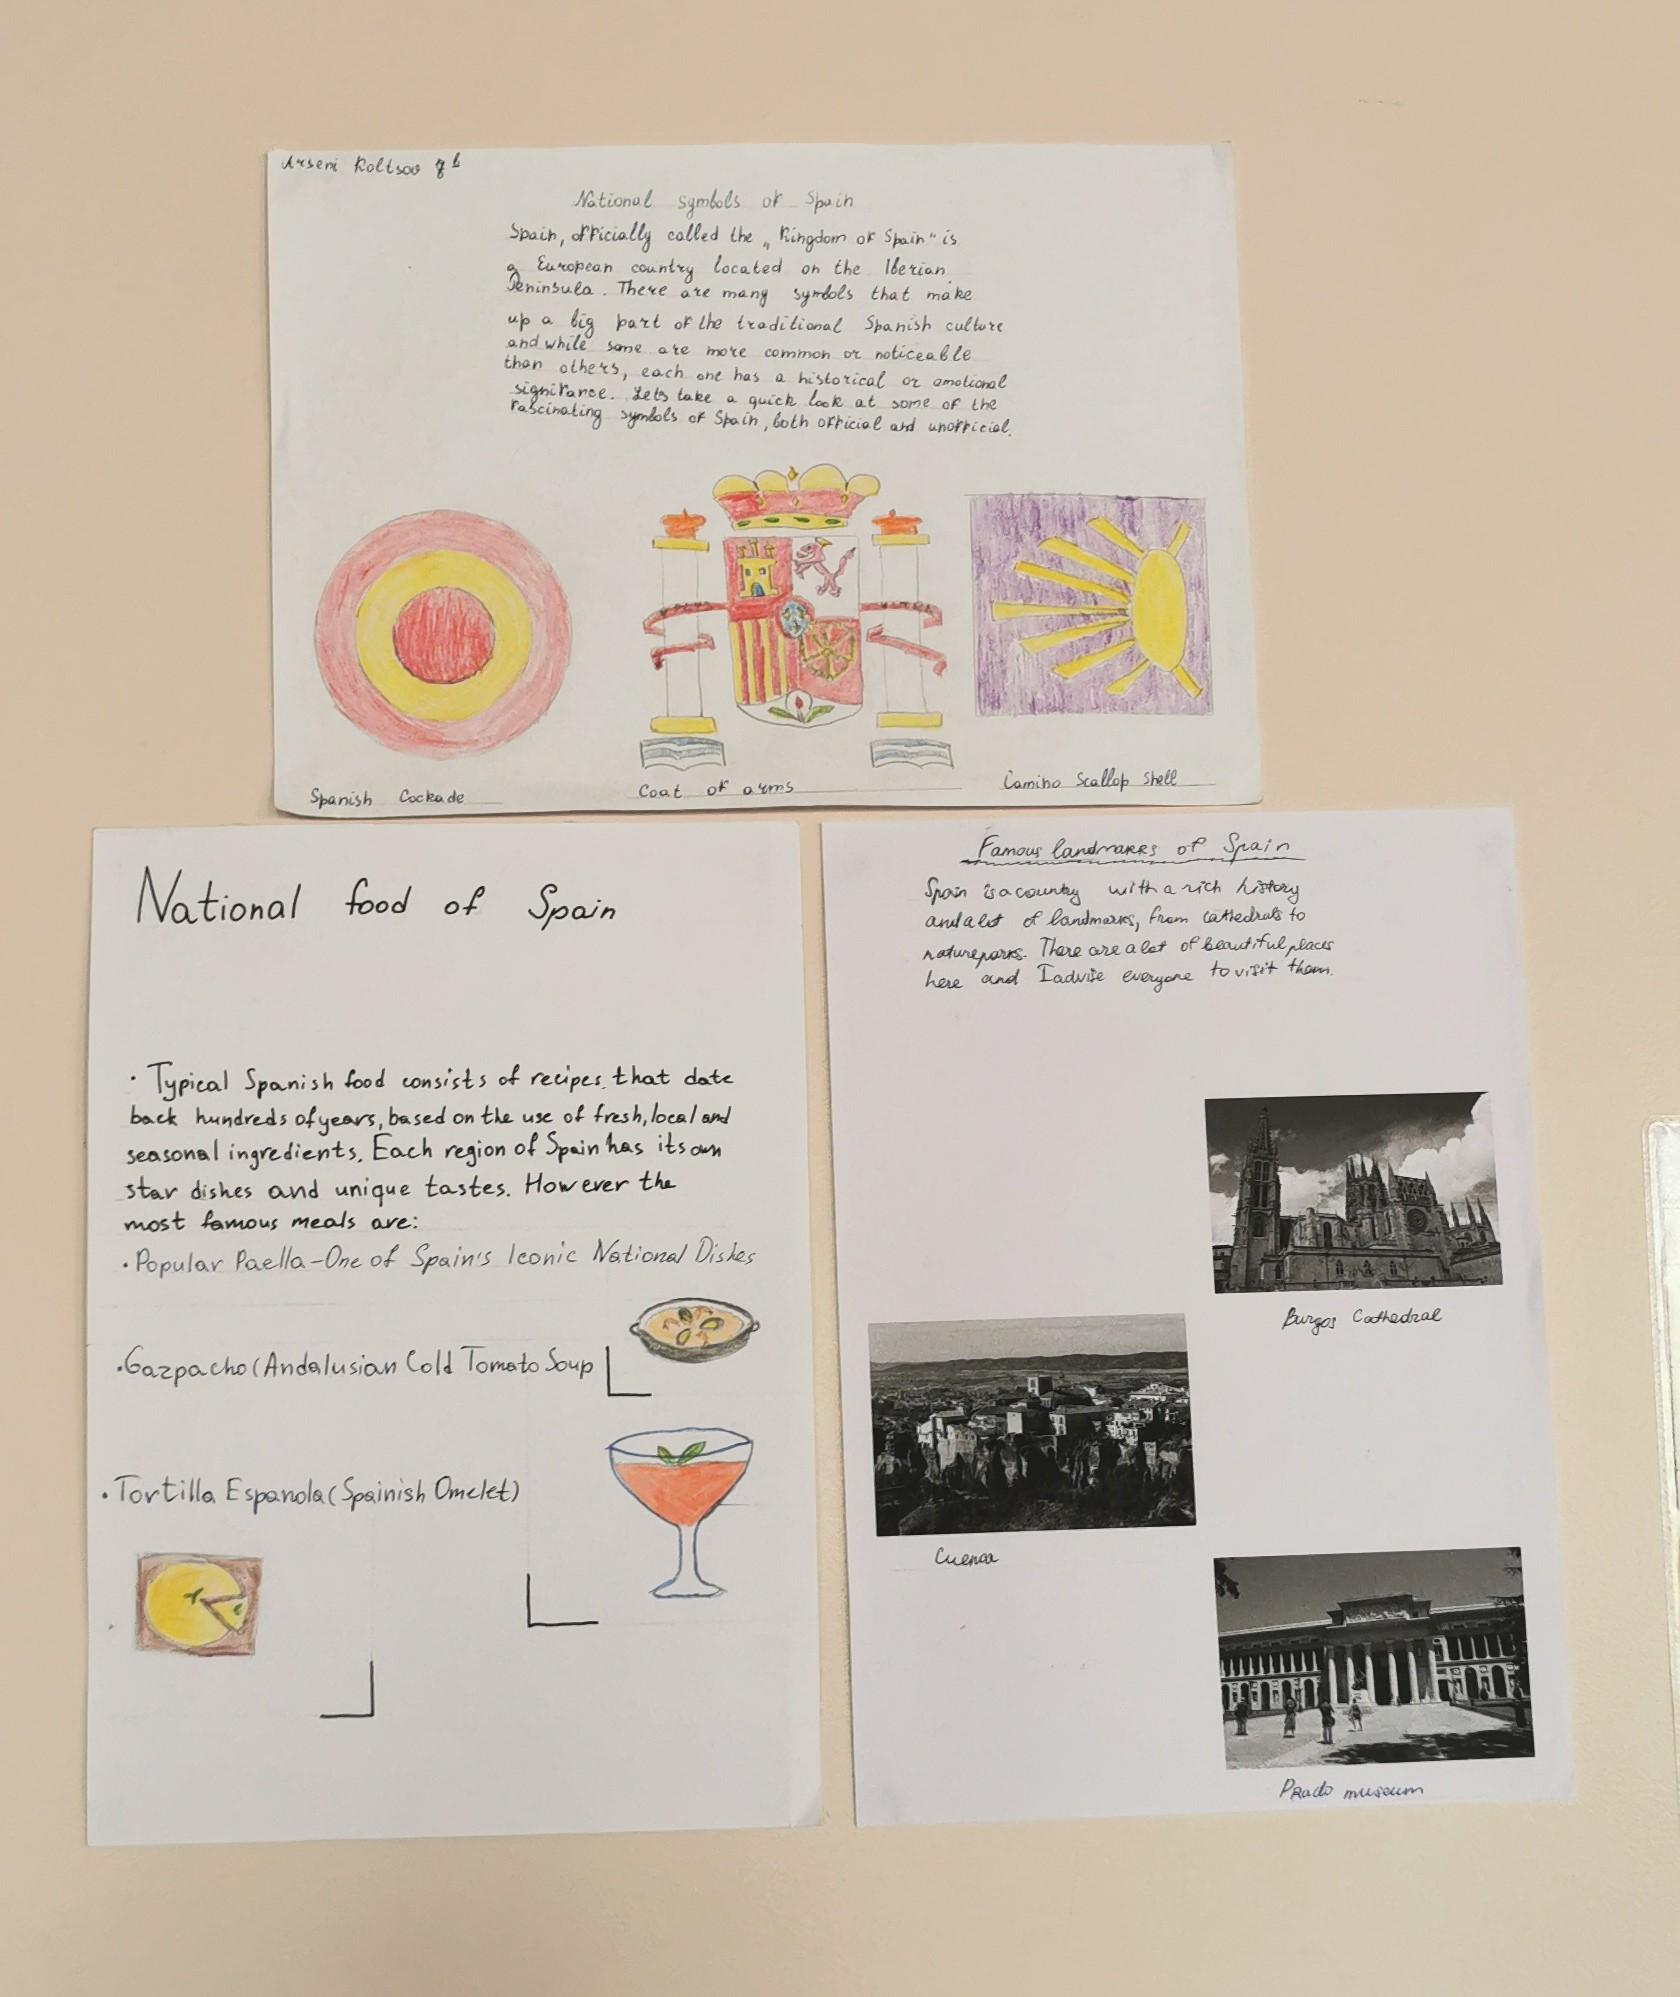 Arseni Koltsov 7b
National symbols of Spain
Spain, officially called the „Kingdom of Spain" is
a European country located on the Iberian
Peninsula. There are many symbols that make
up a big part of the traditional Spanish culture
and while some are more common or noticeable
than others, each one has a historical or emotional
signifance. Lets take a quick look at some of the
fascinating symbols of Spain, both official and unofficial.
Spanish Cockade
Coat of arms
Camino Scallop Shell
National food of Spain
• Typical Spanish food consists of recipes that date
back hundreds of years, based on the use of fresh, local and
seasonal ingredients. Each region of Spain has its own
star dishes and unique tastes. However the
most famous meals are:
• Popular Paella-One of Spain's Iconic National Dishes
• Gazpacho (Andalusian Cold Tomato Soup
• Tortilla Espanola (Spainish Omelet)
Famous landmarks of Spain
Spain is a country with a rich history
and a lot of landmarks, from cathedrals to
nature parks. There are a lot of beautiful places
here and I advise everyone to visit them.
Burgos Cathedral
Cuenca
Prado museum